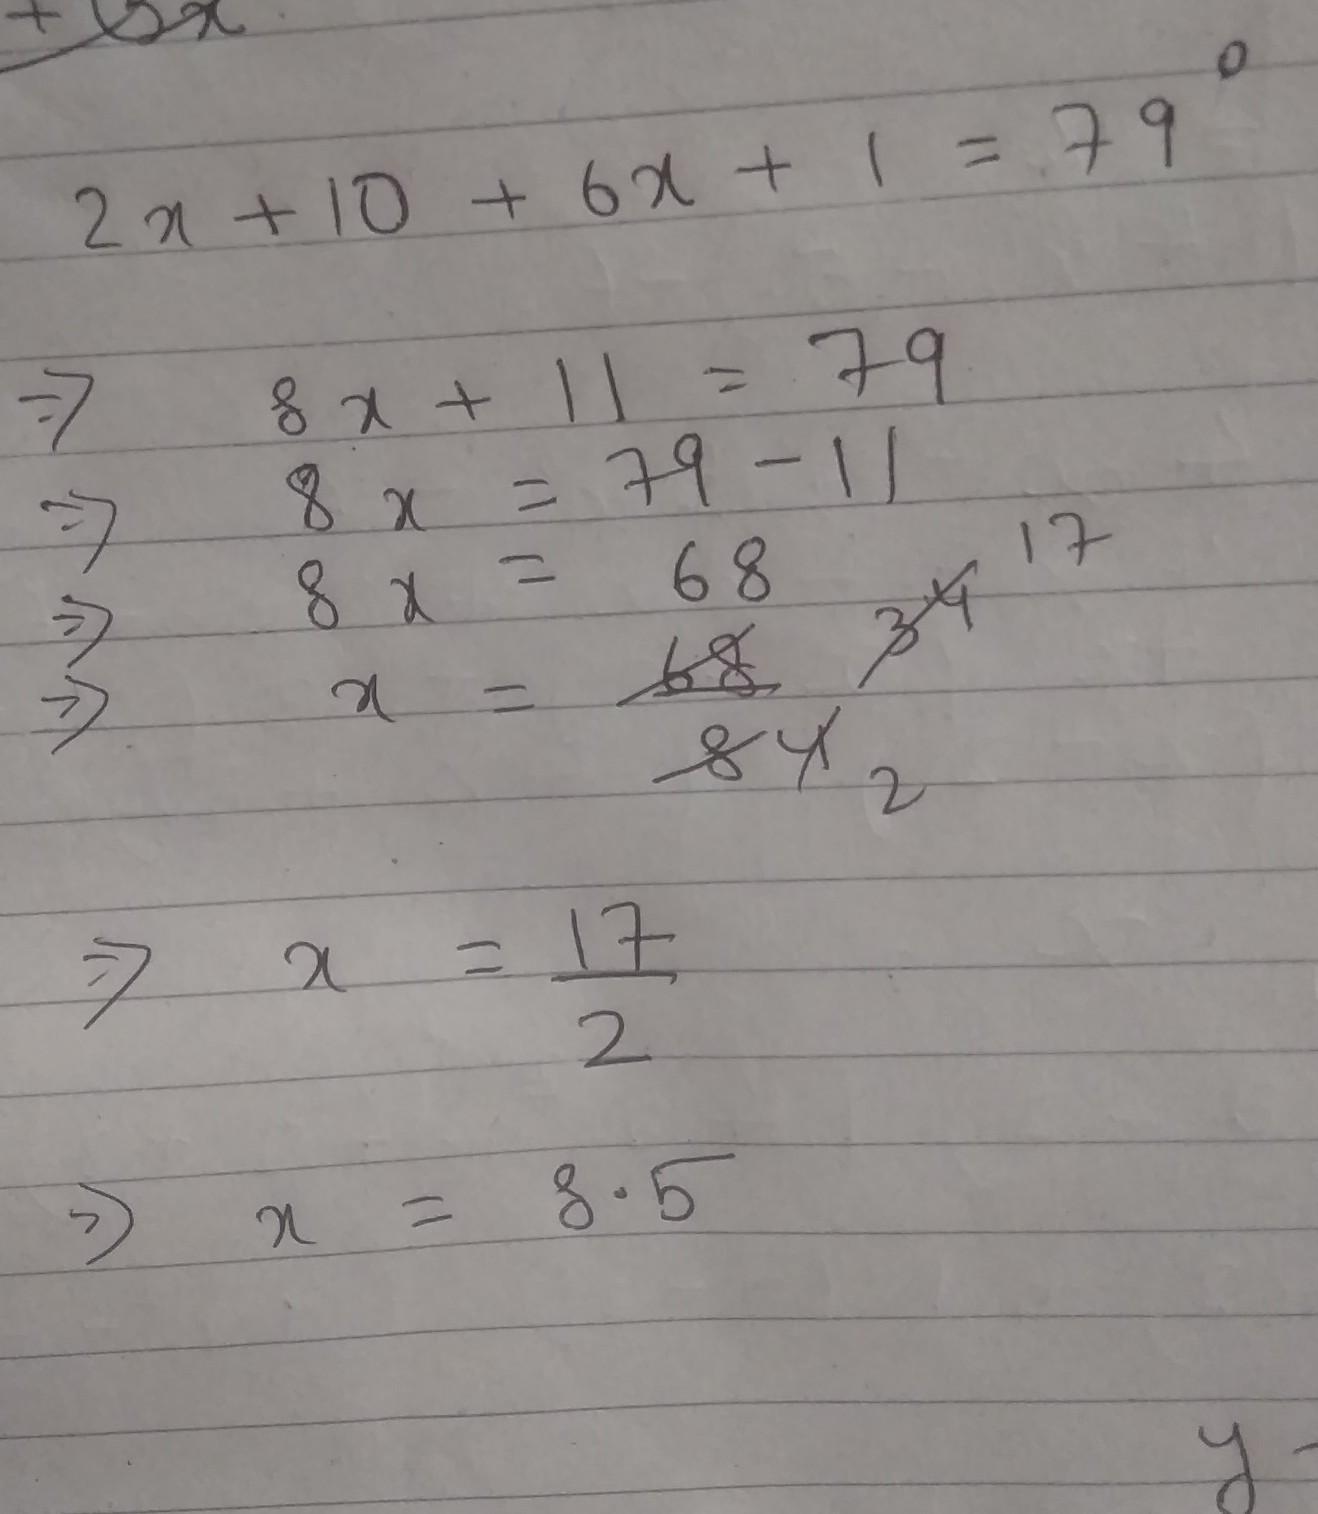 2x + 10 + 6x + 1 = 79°
⇒ 8x + 11 = 79
⇒ 8x = 79 - 11
⇒ 8x = 68
⇒ x = 68/8 34/4 17/2
⇒ x = 17/2
⇒ x = 8.5
y -